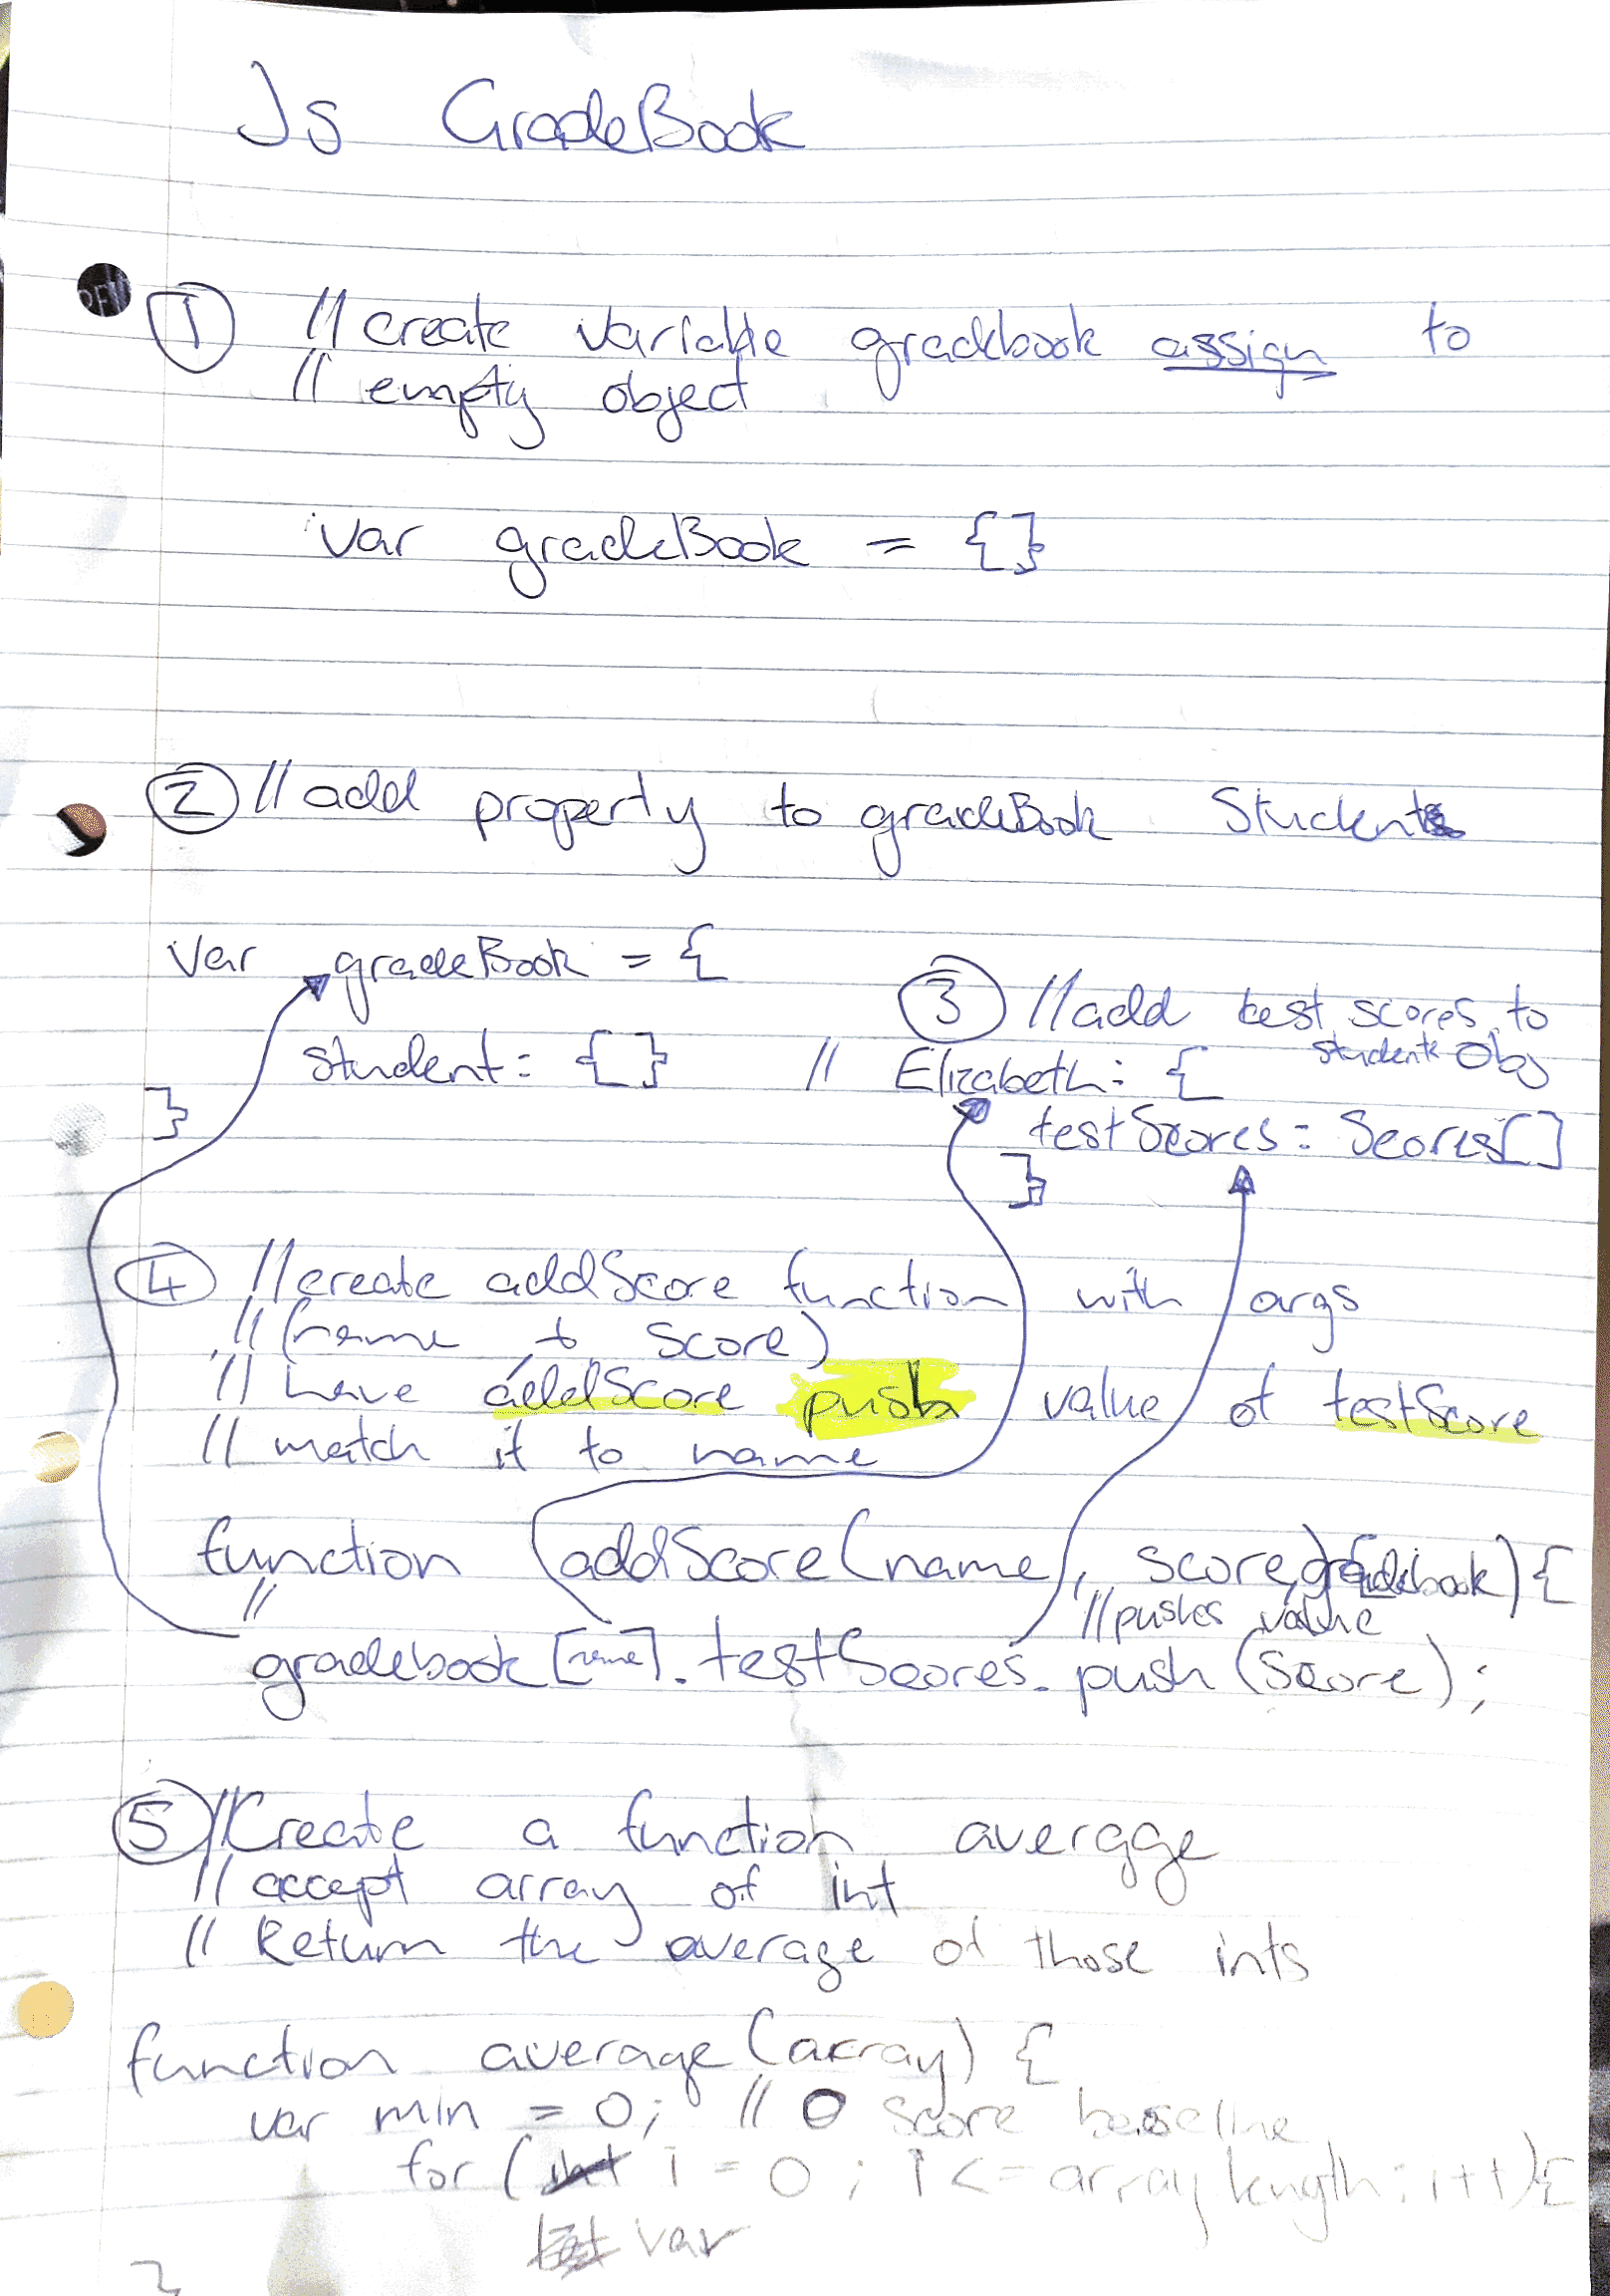 Js GradeBook
① // create variable gradebook assign to
// empty object
var gradeBook = {}
② // add property to gradeBook Students
var gradeBook = {
student: {}
}
③ // add test scores to
students Obj
// Elizabeth: {
testScores: Scores[]
}
④ // create addScore function with args
// (name + score)
// have addScore push value of testScore
// match it to name
function addScore(name, score, gradebook) {
//
// pushes value
gradebook[name].testScores.push(score);
⑤ // Create a function average
// accept array of int
// Return the average of those ints
function average(array) {
var min = 0; // 0 score baseline
for (int i = 0; i <= array length; i++) {
var
}